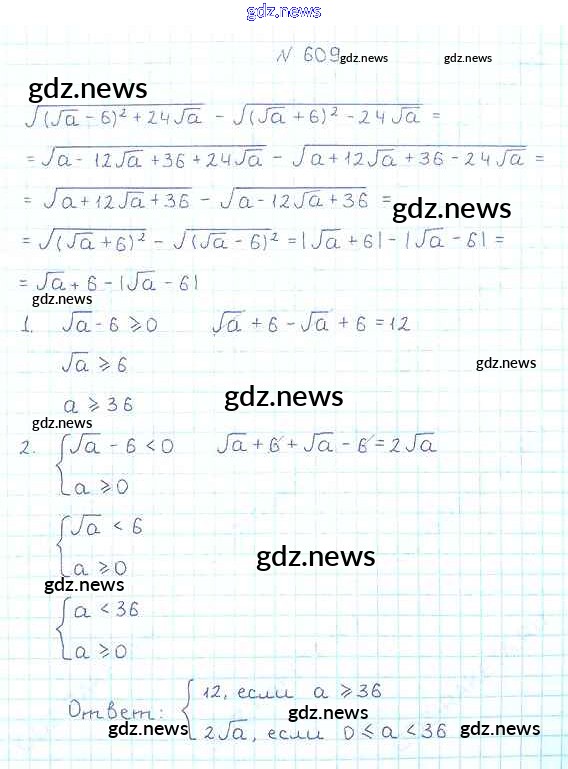 gdz.news
N 609 gdz.news gdz.news
gdz.news
√((√a - 6)² + 24√a) - √((√a + 6)² - 24√a) =
= √(a - 12√a + 36 + 24√a) - √(a + 12√a + 36 - 24√a) =
= √(a + 12√a + 36) - √(a - 12√a + 36) =
gdz.news
= √((√a + 6)²) - √((√a - 6)²) = |√a + 6| - |√a - 6| =
= √a + 6 - |√a - 6|
gdz.news
1. √a - 6 ⩾ 0 √a + 6 - √a + 6 = 12
√a ⩾ 6 gdz.news
a ⩾ 36 gdz.news
gdz.news
2. { √a - 6 < 0 √a + 6 + √a - 6 = 2√a
a ⩾ 0
{ √a < 6
gdz.news
a ⩾ 0
gdz.news
{ a < 36
a ⩾ 0
Ответ: { 12, если a ⩾ 36
gdz.news
2√a, если 0 ⩽ a < 36
gdz.news gdz.news